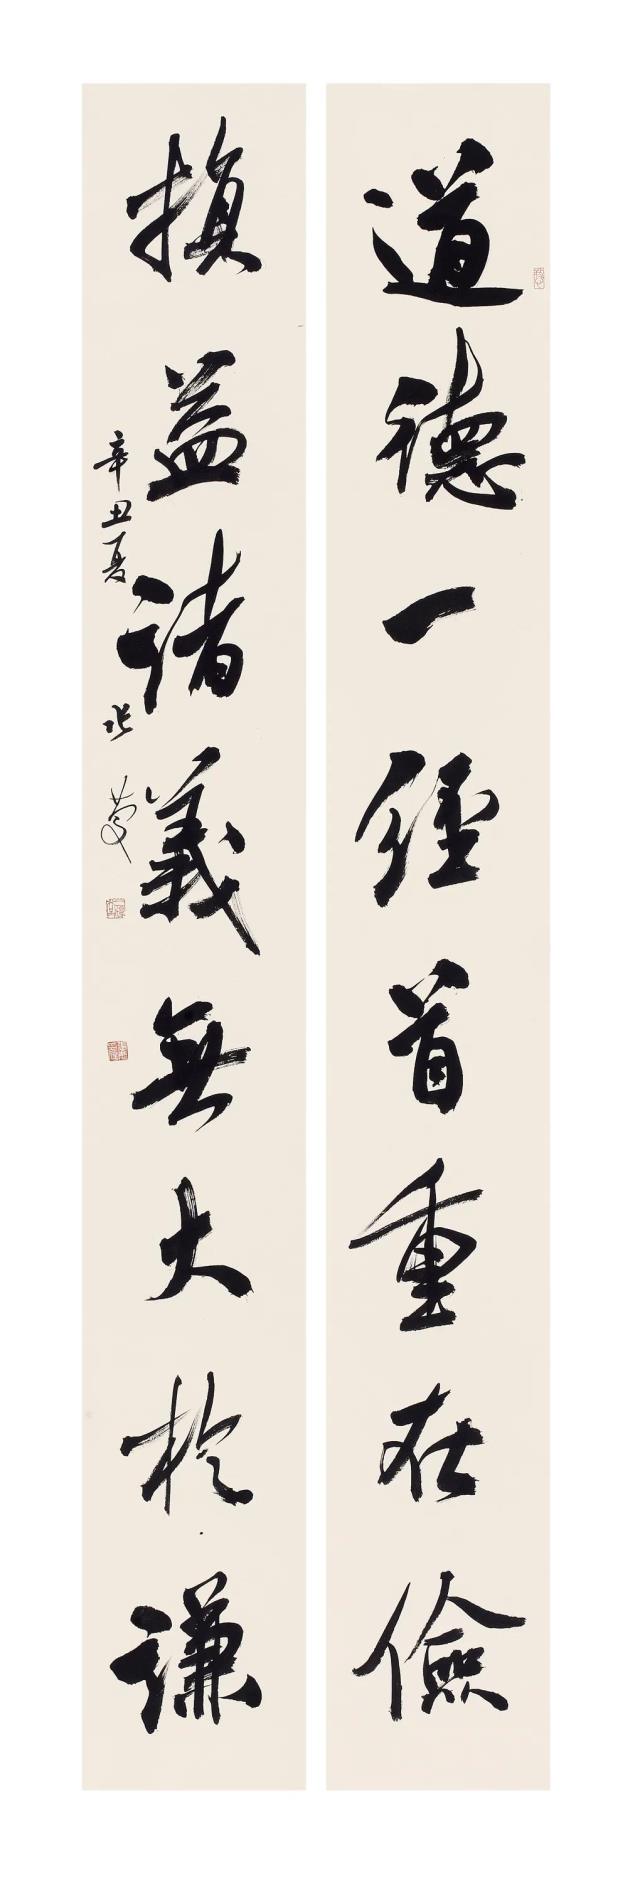 道德一經首重在儉
損益諸義無大於謙
辛丑夏 張